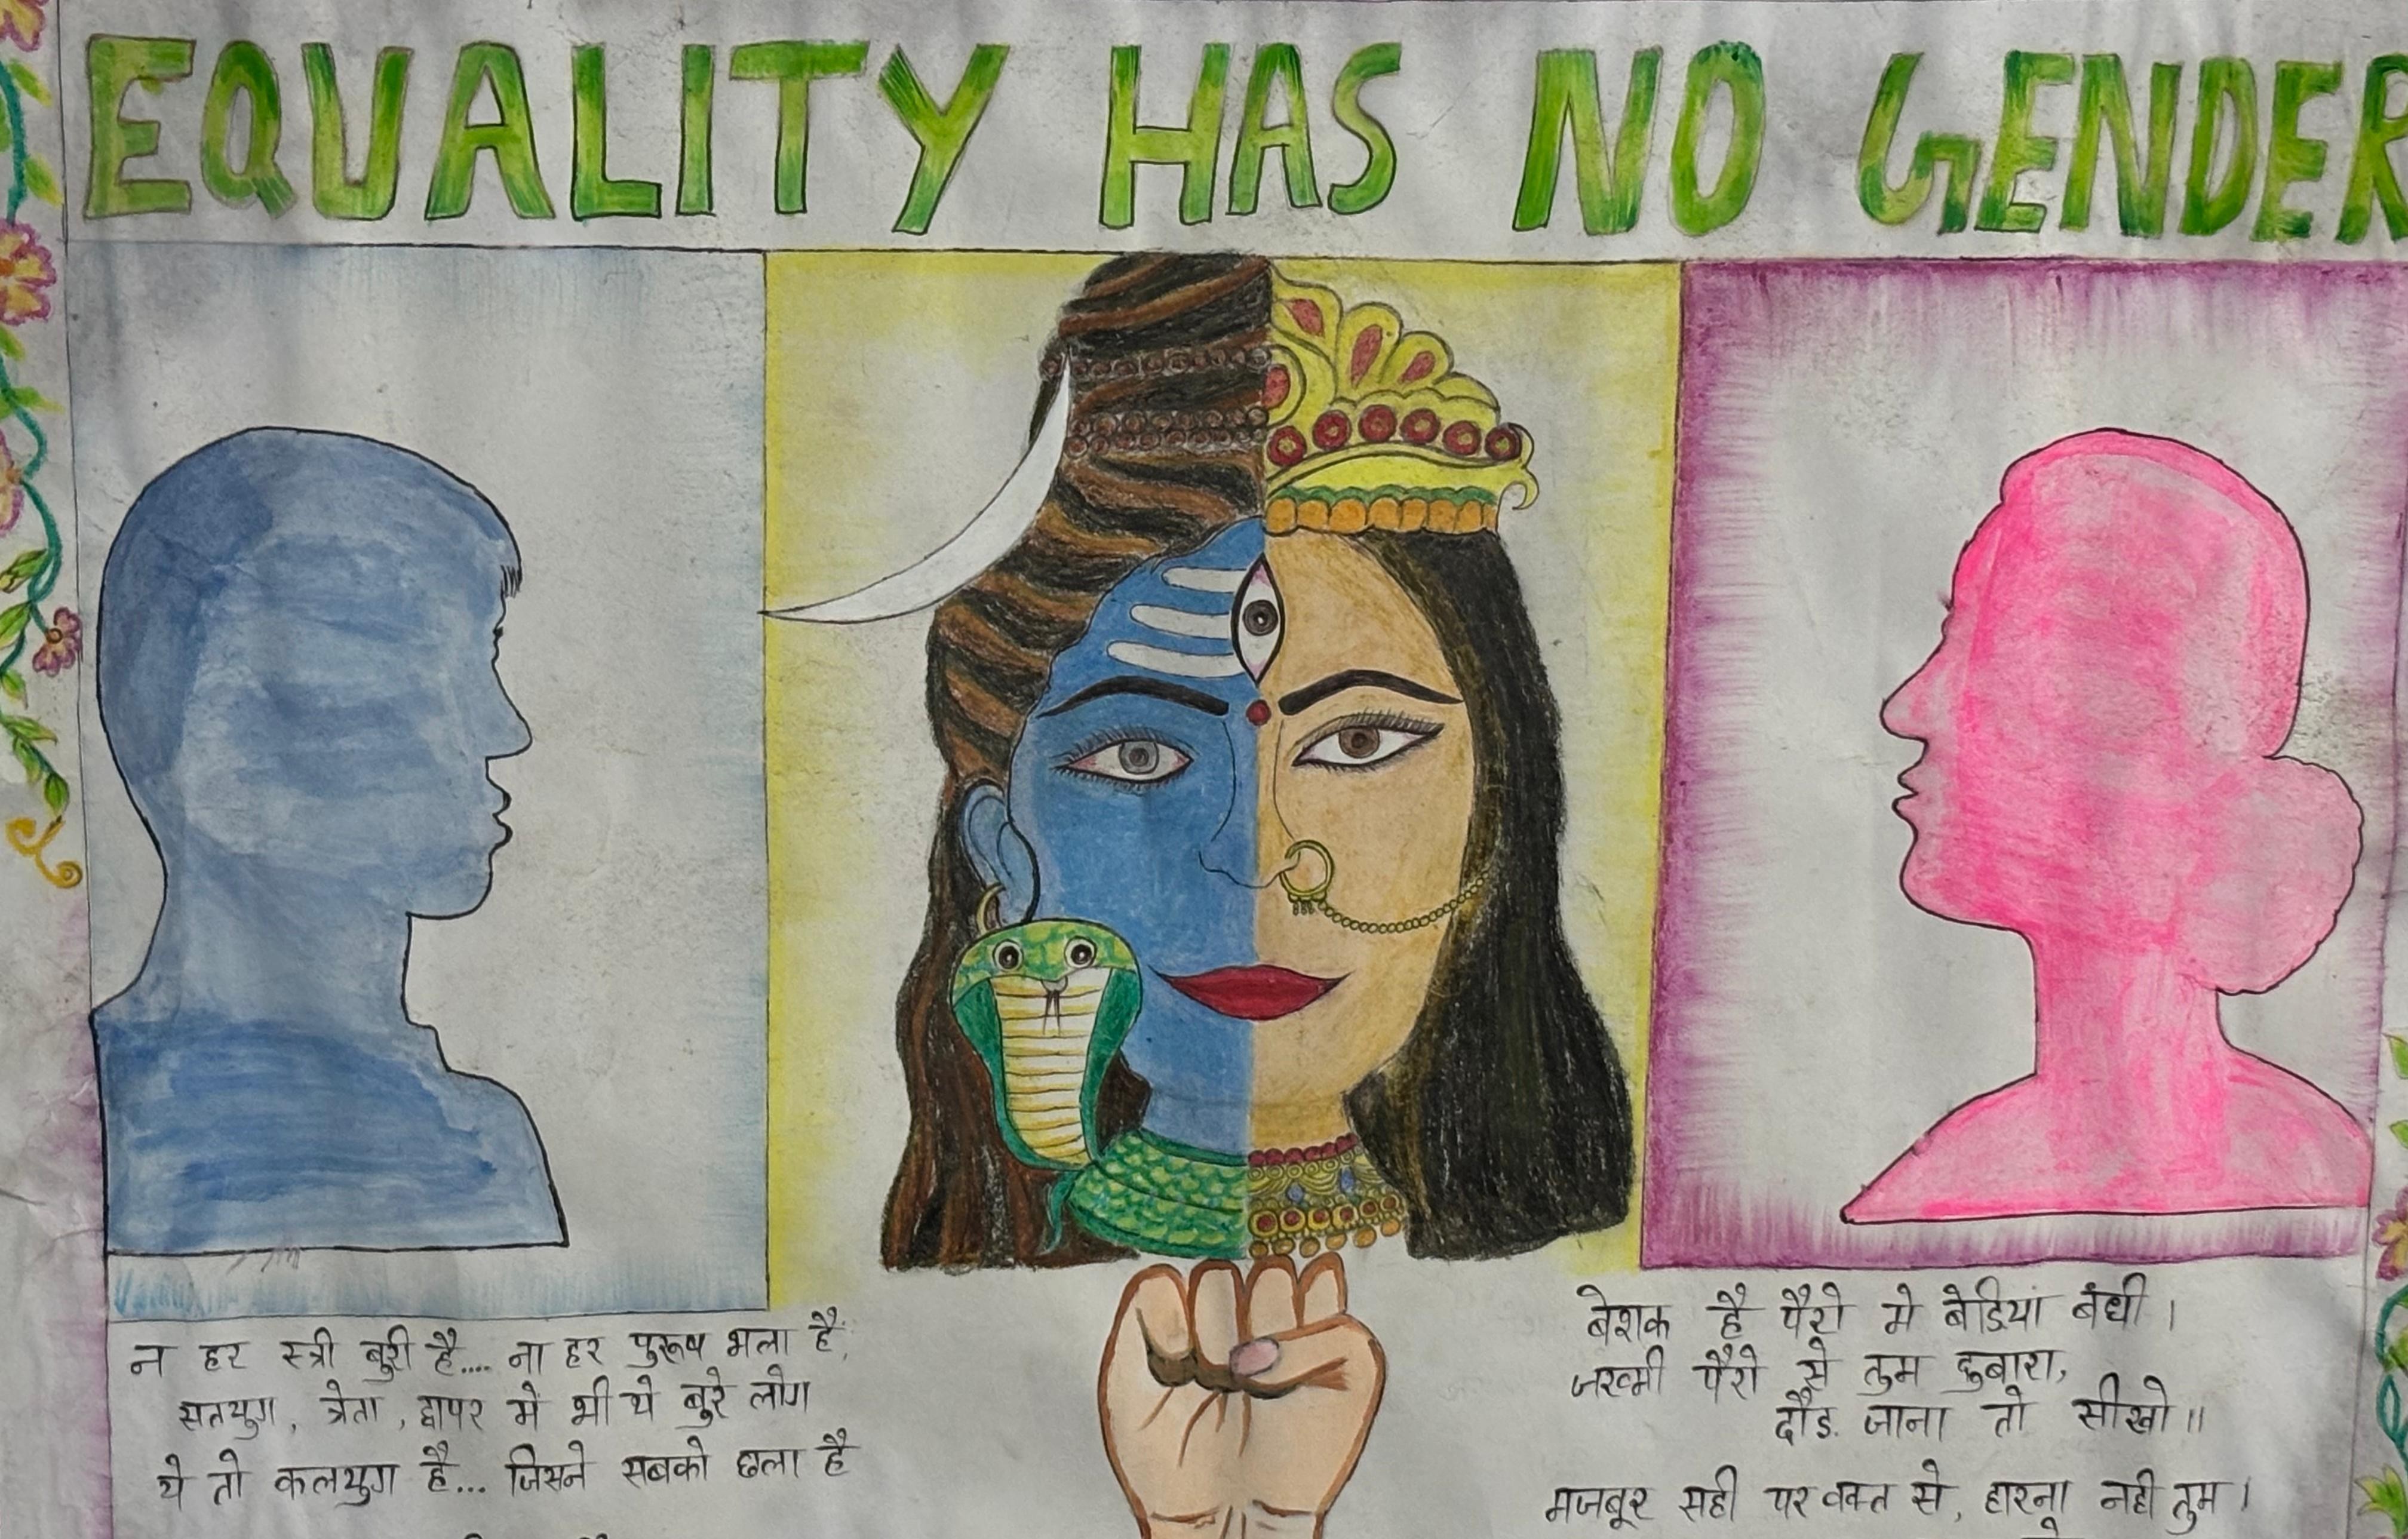 EQUALITY HAS NO GENDER
न हर स्त्री बुरी है.... ना हर पुरूष भला है,
सतयुग, त्रेता, द्वापर में भी थे बुरे लोग
ये तो कलयुग है... जिसने सबको छला है
बेशक है पैरो मे बेडियां बंधी।
जख्मी पैरो से तुम दुबारा,
दौड. जाना तो सीखो॥
मजबूर सही पर वक्त से, हारना नही तुम।